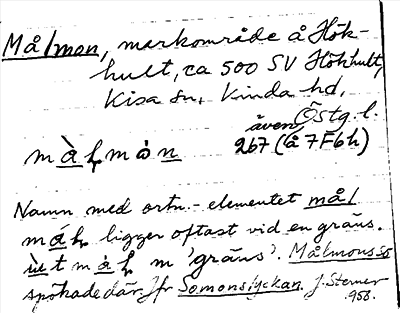 Målmon, markområde å Hök-
hult, ca 500 SV Hökhult,
Kisa sn, Kinda hd,
Östg.l.
även
267 (å 7F6h)
Namn med ortn.-elementet mål
ligger oftast vid en gräns.
m 'gräns'. Målmons
spökade där. Jfr Somonslyckan. J. Sterner
1956.